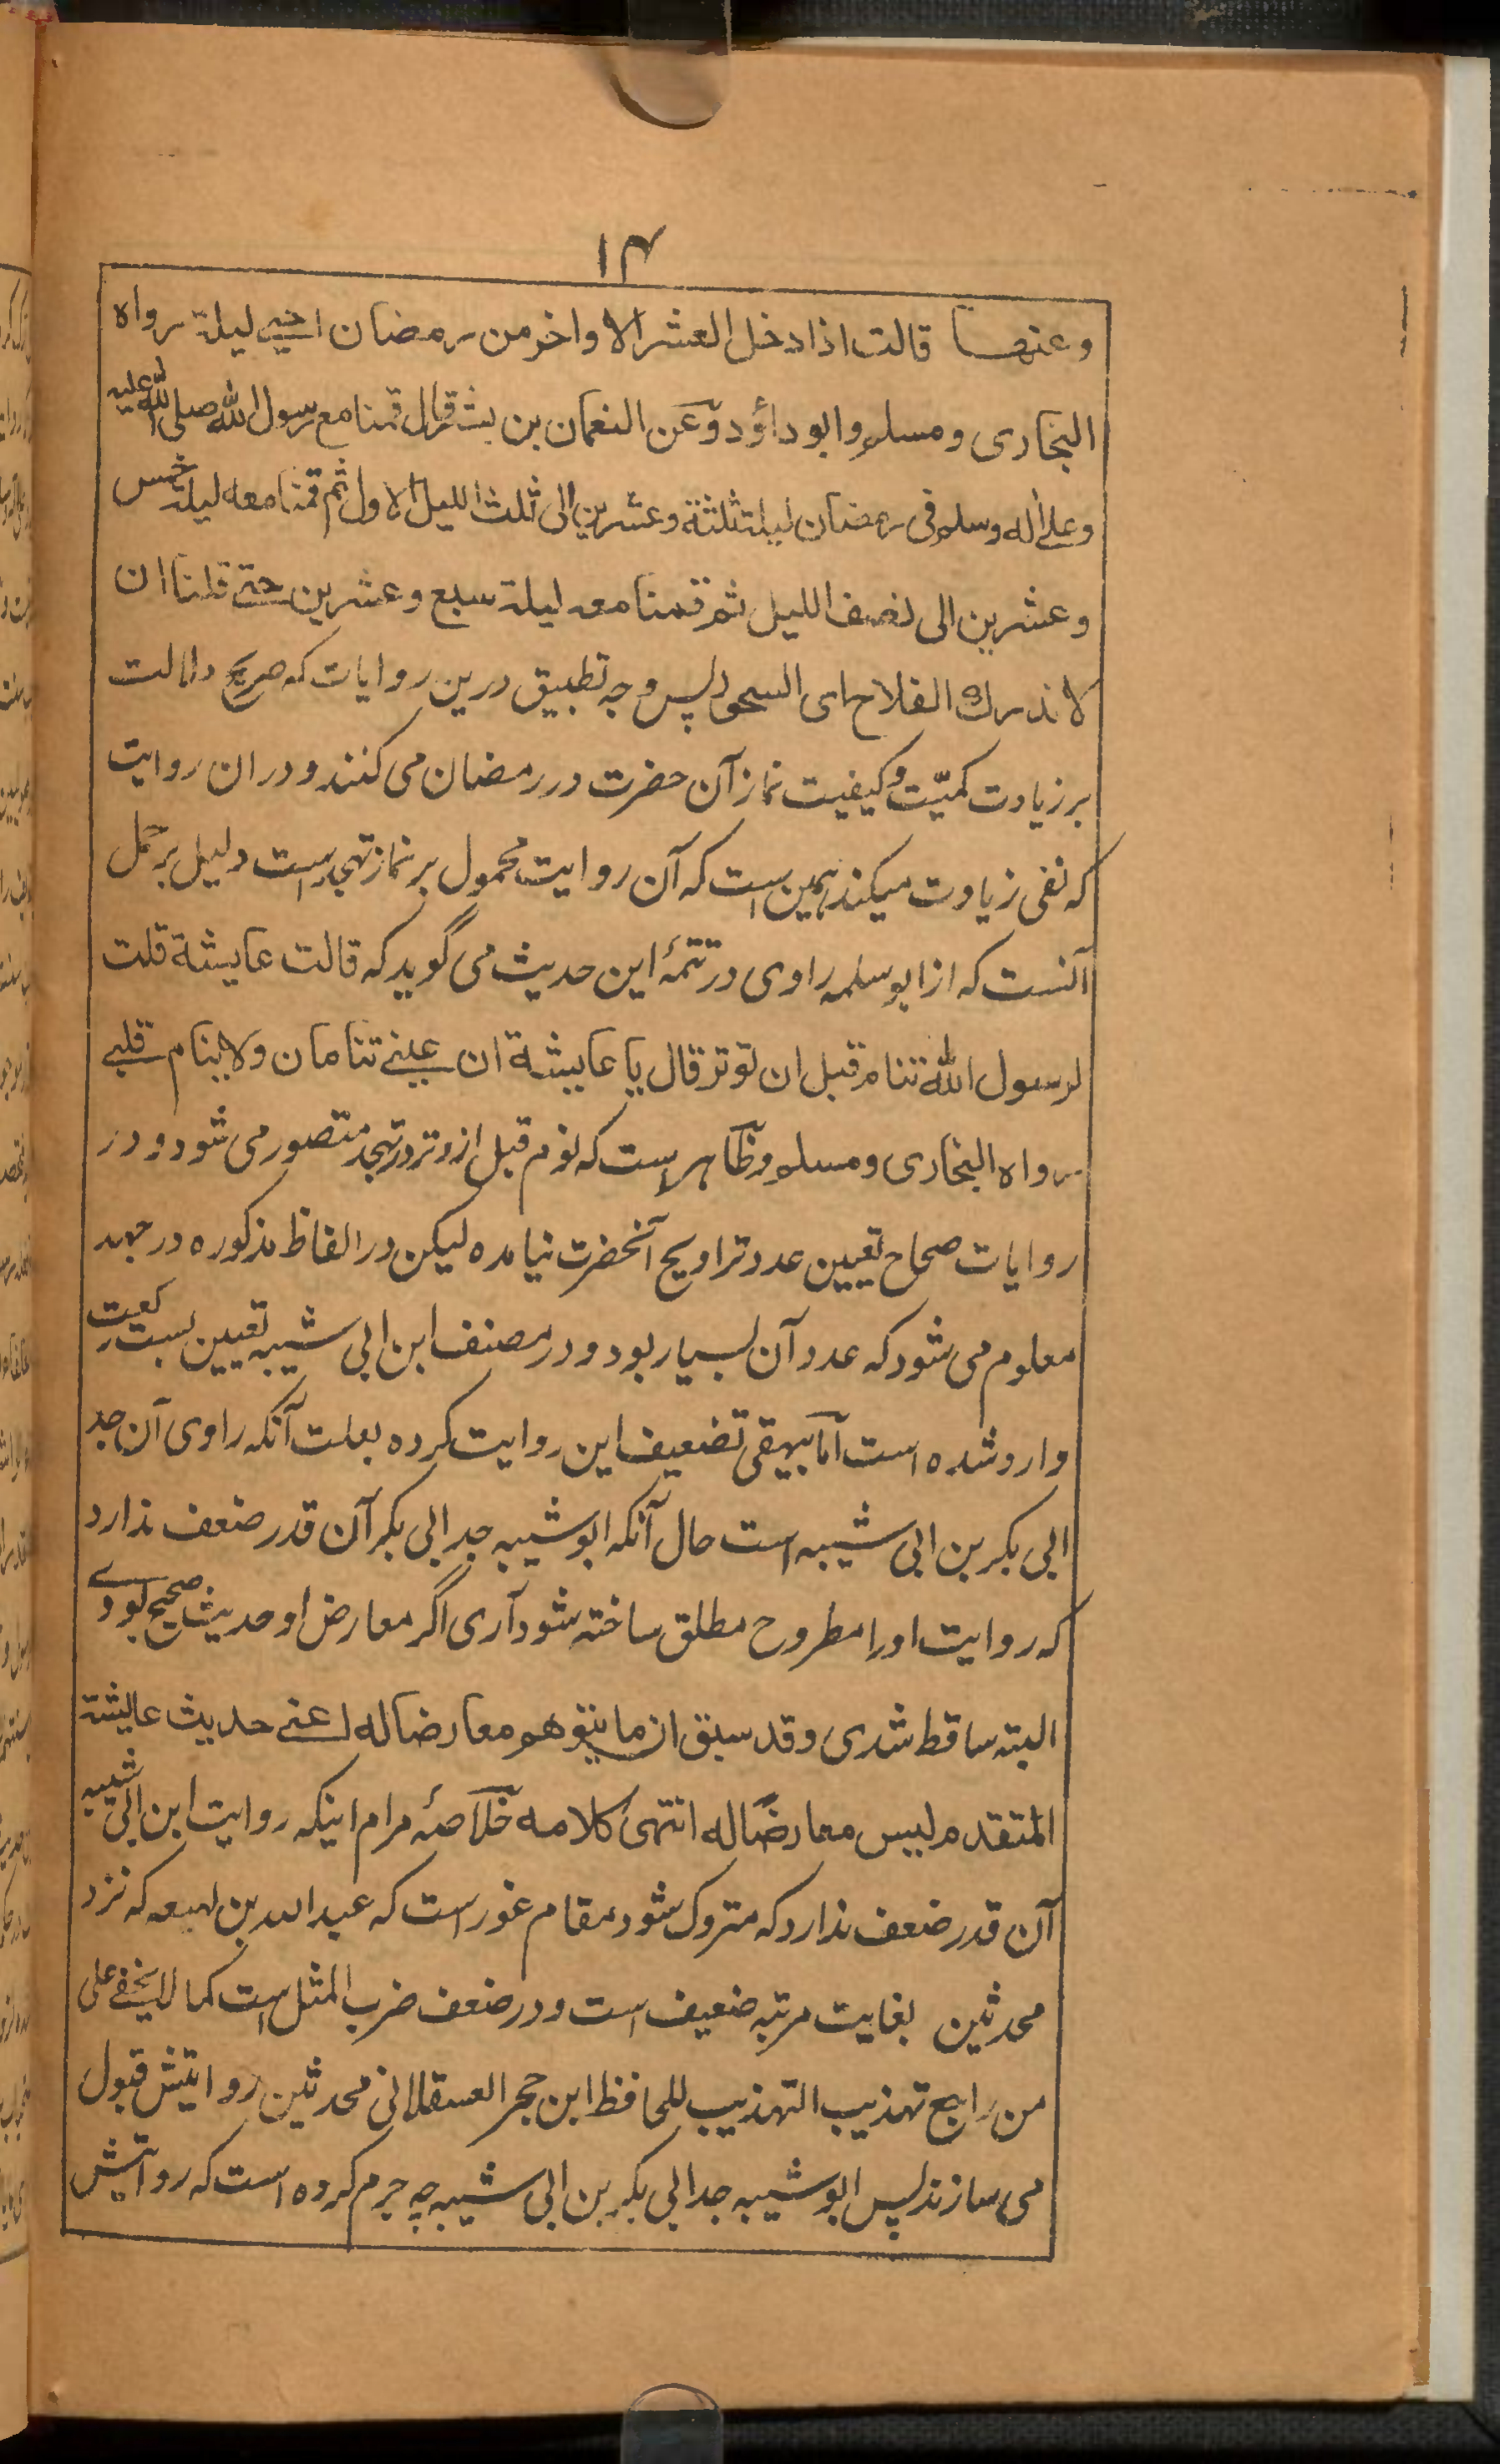 ١٤
وعنها قالت اذا دخل العشر الاواخر من رمضان احيى ليلة رواه
البخارى ومسلم وابو داؤد وعن النعمان بن بشر قال قمنا مع رسول الله صلى الله عليه
وعلى اله وسلم فى رمضان ليلة ثلثة وعشرين الى ثلث الليل الاول ثم قمنا معه ليلة خمس
وعشرين الى نصف الليل ثم قمنا معه ليلة سبع وعشرين حتى قلنا ان
لا ندرك الفلاح اى السحور پس وجه تطبيق درين روايات كه صريح دلالت
بر زيادت كميّت وكيفيت نماز آن حضرت در رمضان مى كنند و دران روايت
كه نفى زيادت ميكند همين است كه آن روايت محمول بر نماز تهجد است دليل بر حمل
آنست كه از ابو سلمه راوى در تتمهٔ اين حديث مى گويد كه قالت عايشة قلت
لرسول الله تنام قبل ان توتر قال يا عايشة ان عينى تنامان ولا ينام قلبى
رواه البخارى ومسلم وظاهر است كه نوم قبل از وتر در تهجد متصور مى شود و در
روايات صحاح تعيين عدد تراويح آنحضرت نيامده ليكن در الفاظ مذكوره در جهد
معلوم مى شود كه عدد آن بسيار بود و در مصنف ابن ابى شيبه تعيين بست ركعت
وارد شده است اما بيهقى تضعيف اين روايت كرده بعلت آنكه راوى آن جد
ابى بكر بن ابى شيبه است حال آنكه ابو شيبه جد ابى بكر آن قدر ضعف ندارد
كه روايت اورا مطروح مطلق ساخته شود آرى اگر معارض او حديث صحيح بودے
البته ساقط شدى وقد سبق ان ما يتوهم معارضا له اعنى حديث عايشة
المتقدم ليس معارضًا له انتهى كلامه خلاصهٔ مرام اينكه روايت ابن ابى شيبه
آن قدر ضعف ندارد كه متروك شود مقام غور است كه عبد الله بن لهيعه كه نزد
محدثين بغايت مرتبه ضعيف است و در ضعف ضرب المثل است كما لا يخفى على
من راجع تهذيب التهذيب للحافظ ابن حجر العسقلانى محدثين روايتش قبول
مى سازند پس ابو شيبه جد ابى بكر بن ابى شيبه چه جرم كرده است كه روايتش